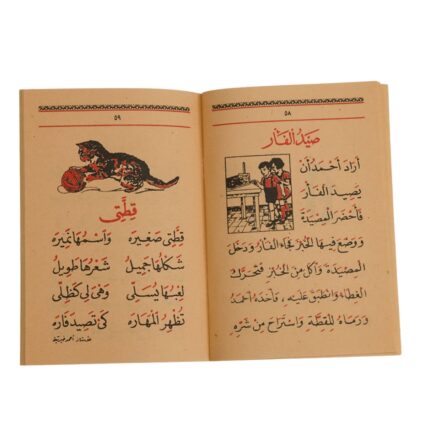 ٥٨
صَيْدُ الفَأر
أرَادَ أحْمَدُ أنْ
يَصِيدَ الفَأرَ
فَأحْضَرَ المِصْيَدَةَ
وَوَضَعَ فِيهَا الخُبْزَ فَجَاءَ الفَأرُ وَدَخَلَ
المِصْيَدَةَ وَأكَلَ مِنَ الخُبْزِ فَتَحَرَّكَ
الغِطَاءُ وَانْطَبَقَ عَلَيْهِ، فَأخَذَهُ أحْمَدُ
وَرَمَاهُ لِلْقِطَّةِ وَاسْتَرَاحَ مِنْ شَرِّهِ
٥٩
قِطَّتِي
قِطَّتِي صَغِيرَه وَاسْمُهَا نَمِيرَه
شَكْلُهَا جَمِيلُ شَعْرُهَا طَوِيلُ
لِعْبُهَا يُسَلِّي وَهْيَ لِي كَظِلِّي
تُظْهِرُ المَهَارَه كَيْ تَصِيدَ فَارَه